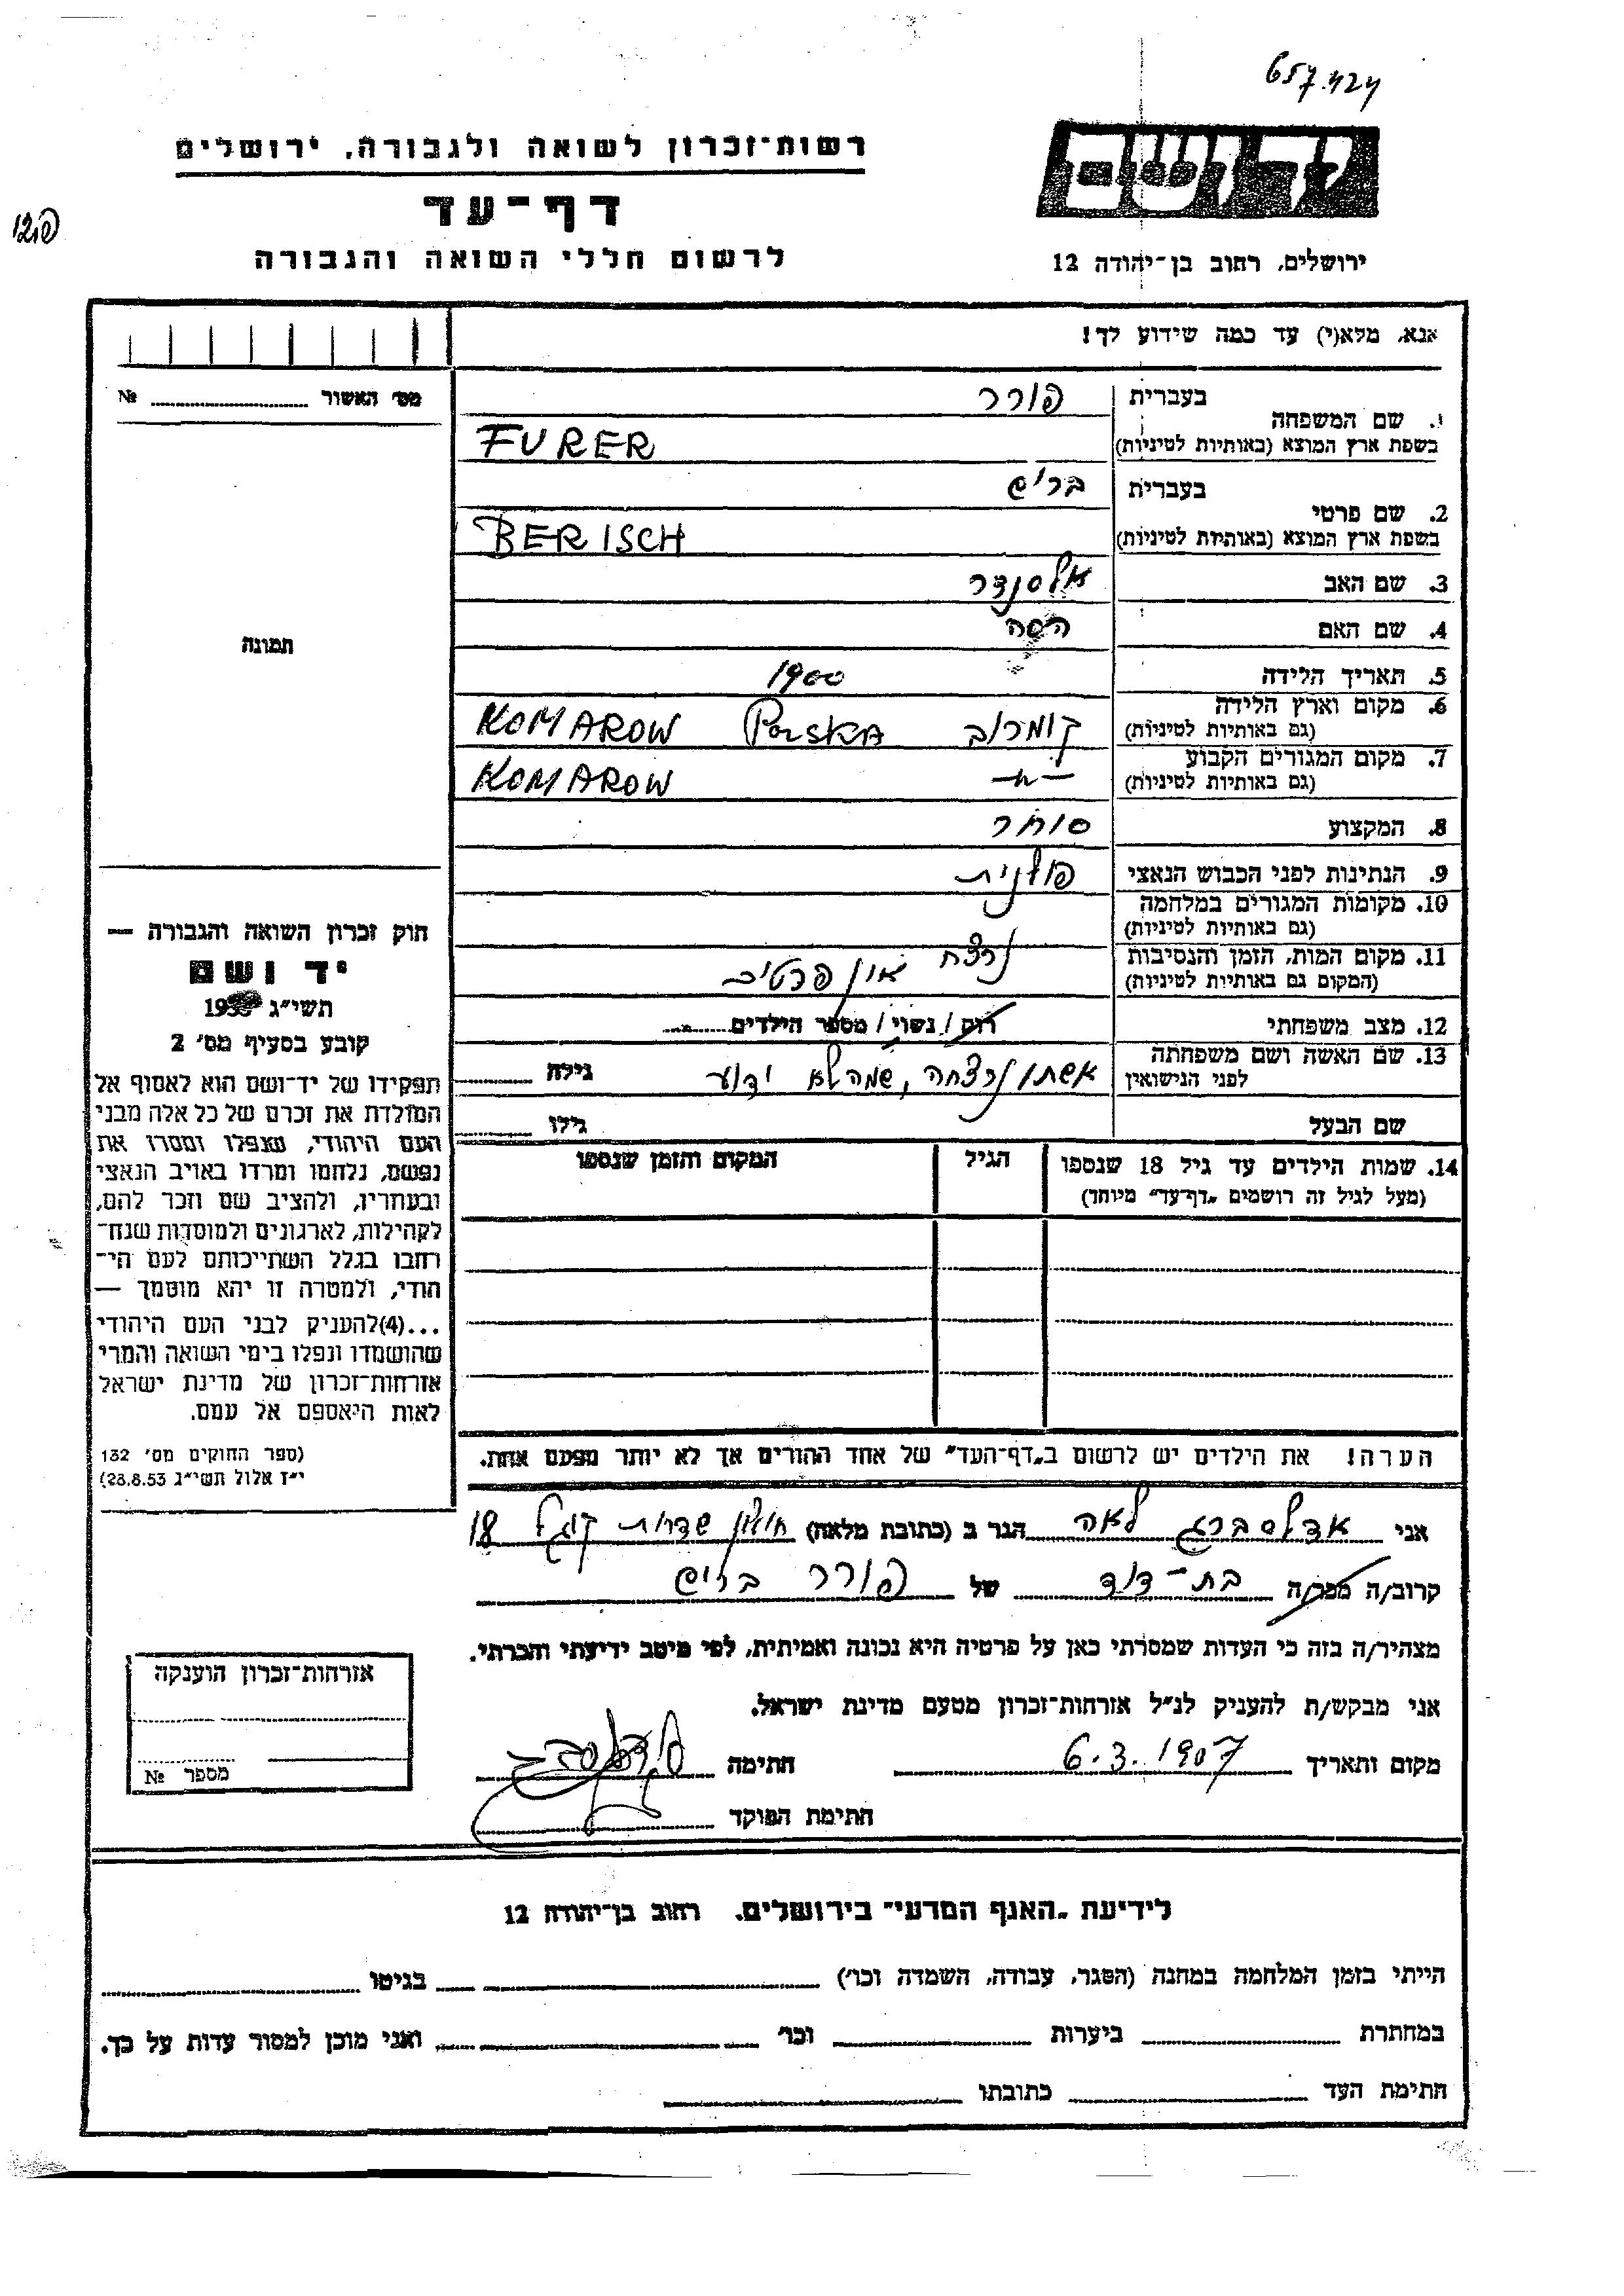 657.424
רשות־זכרון לשואה ולגבורה, ירושלים
דף־עד
לרשום חללי השואה והגבורה
ירושלים, רחוב בן־יהודה 12
אנא, מלא(י) עד כמה שידוע לך!
מס׳ האשור № 
1. שם המשפחה בעברית פורר
בשפת ארץ המוצא (באותיות לטיניות) FURER
2. שם פרטי בעברית בריש
בשפת ארץ המוצא (באותיות לטיניות) BERISCH
3. שם האב
4. שם האם הסה
5. תאריך הלידה 1900
6. מקום וארץ הלידה (גם באותיות לטיניות) קומרוב Polska KOMAROW
7. מקום המגורים הקבוע (גם באותיות לטיניות) —״— KOMAROW
8. המקצוע סוחר
9. הנתינות לפני הכבוש הנאצי פולנית
10. מקומות המגורים במלחמה (גם באותיות לטיניות)
11. מקום המות, הזמן והנסיבות (המקום גם באותיות לטיניות) נרצח אין פרטים
12. מצב משפחתי רוק / נשוי / מספר הילדים
13. שם האשה ושם משפחתה לפני הנישואין אשתו נרצחה, שמה לא ידוע גילה
שם הבעל גילו
14. שמות הילדים עד גיל 18 שנספו הגיל המקום והזמן שנספו
(מעל לגיל זה רושמים „דף־עד״ מיוחד)
הערה! את הילדים יש לרשום ב„דף־העד״ של אחד ההורים אך לא יותר מפעם אחת.
תמונה
חוק זכרון השואה והגבורה —
יד ושם
תשי״ג
קובע בסעיף מס׳ 2
תפקידו של יד־ושם הוא לאסוף אל
המולדת את זכרם של כל אלה מבני
העם היהודי, שנפלו ומסרו את
נפשם, נלחמו ומרדו באויב הנאצי
ובעוזריו, ולהציב שם וזכר להם,
לקהילות, לארגונים ולמוסדות שנח־
רבו בגלל השתייכותם לעם הי־
הודי, ולמטרה זו יהא מוסמך —
...(4)להעניק לבני העם היהודי
שהושמדו ונפלו בימי השואה והמרי
אזרחות־זכרון של מדינת ישראל
לאות היאספם אל עמם.
(ספר החוקים מס׳ 132
י״ז אלול תשי״ג 28.8.53)
אני אדלסברג לאה הגר ב (כתובת מלאה) חולון שדרות קוגל 18
קרוב/ה מכר/ה בת־דוד של פורר בריש
מצהיר/ה בזה כי העדות שמסרתי כאן על פרטיה היא נכונה ואמיתית, לפי מיטב ידיעתי והכרתי.
אני מבקש/ת להעניק לנ״ל אזרחות־זכרון מטעם מדינת ישראל.
מקום ותאריך 6.3.1907 חתימה
חתימת הפוקד
אזרחות־זכרון הוענקה
מספר №
לידיעת „האגף המדעי״ בירושלים, רחוב בן־יהודה 12
הייתי בזמן המלחמה במחנה (הסגר, עבודה, השמדה וכו׳) בגיטו
במחתרת ביערות וכו׳ ואני מוכן למסור עדות על כך.
חתימת העד כתובתו